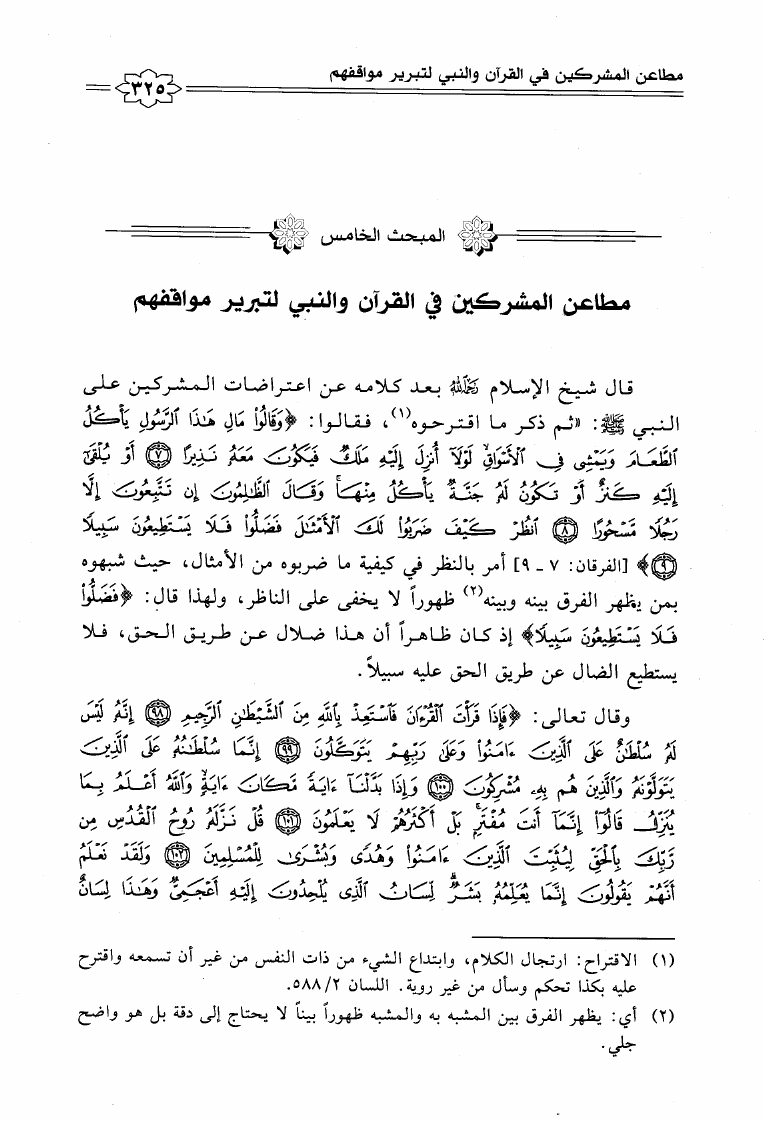 مطاعن المشركين في القرآن والنبي لتبرير مواقفهم
٣٢٥
المبحث الخامس
مطاعن المشركين في القرآن والنبي لتبرير مواقفهم
قال شيخ الإسلام رحمه الله بعد كلامه عن اعتراضات المشركين على
النبي ﷺ: «ثم ذكر ما اقترحوه(١)، فقالوا: ﴿وَقَالُوا۟ مَالِ هَـٰذَا ٱلرَّسُولِ يَأْكُلُ
ٱلطَّعَامَ وَيَمْشِى فِى ٱلْأَسْوَاقِ ۙ لَوْلَآ أُنزِلَ إِلَيْهِ مَلَكٌ فَيَكُونَ مَعَهُۥ نَذِيرًا ٧ أَوْ يُلْقَىٰٓ
إِلَيْهِ كَنزٌ أَوْ تَكُونُ لَهُۥ جَنَّةٌ يَأْكُلُ مِنْهَا ۚ وَقَالَ ٱلظَّـٰلِمُونَ إِن تَتَّبِعُونَ إِلَّا
رَجُلًا مَّسْحُورًا ٨ ٱنظُرْ كَيْفَ ضَرَبُوا۟ لَكَ ٱلْأَمْثَـٰلَ فَضَلُّوا۟ فَلَا يَسْتَطِيعُونَ سَبِيلًا
٩﴾ [الفرقان: ٧ ـ ٩] أمر بالنظر في كيفية ما ضربوه من الأمثال، حيث شبهوه
بمن يظهر الفرق بينه وبينه(٢) ظهوراً لا يخفى على الناظر، ولهذا قال: ﴿فَضَلُّوا۟
فَلَا يَسْتَطِيعُونَ سَبِيلًا﴾ إذ كان ظاهراً أن هذا ضلال عن طريق الحق، فلا
يستطيع الضال عن طريق الحق عليه سبيلاً.
وقال تعالى: ﴿فَإِذَا قَرَأْتَ ٱلْقُرْءَانَ فَٱسْتَعِذْ بِٱللَّهِ مِنَ ٱلشَّيْطَـٰنِ ٱلرَّجِيمِ ٩٨ إِنَّهُۥ لَيْسَ
لَهُۥ سُلْطَـٰنٌ عَلَى ٱلَّذِينَ ءَامَنُوا۟ وَعَلَىٰ رَبِّهِمْ يَتَوَكَّلُونَ ٩٩ إِنَّمَا سُلْطَـٰنُهُۥ عَلَى ٱلَّذِينَ
يَتَوَلَّوْنَهُۥ وَٱلَّذِينَ هُم بِهِۦ مُشْرِكُونَ ١٠٠ وَإِذَا بَدَّلْنَآ ءَايَةً مَّكَانَ ءَايَةٍ ۙ وَٱللَّهُ أَعْلَمُ بِمَا
يُنَزِّلُ قَالُوٓا۟ إِنَّمَآ أَنتَ مُفْتَرٍۭ ۚ بَلْ أَكْثَرُهُمْ لَا يَعْلَمُونَ ١٠١ قُلْ نَزَّلَهُۥ رُوحُ ٱلْقُدُسِ مِن
رَّبِّكَ بِٱلْحَقِّ لِيُثَبِّتَ ٱلَّذِينَ ءَامَنُوا۟ وَهُدًى وَبُشْرَىٰ لِلْمُسْلِمِينَ ١٠٢ وَلَقَدْ نَعْلَمُ
أَنَّهُمْ يَقُولُونَ إِنَّمَا يُعَلِّمُهُۥ بَشَرٌ ۗ لِّسَانُ ٱلَّذِى يُلْحِدُونَ إِلَيْهِ أَعْجَمِىٌّ وَهَـٰذَا لِسَانٌ
(١) الاقتراح: ارتجال الكلام، وابتداع الشيء من ذات النفس من غير أن تسمعه واقترح
عليه بكذا تحكم وسأل من غير روية. اللسان ٥٨٨/٢.
(٢) أي: يظهر الفرق بين المشبه به والمشبه ظهوراً بيناً لا يحتاج إلى دقة بل هو واضح
جلي.